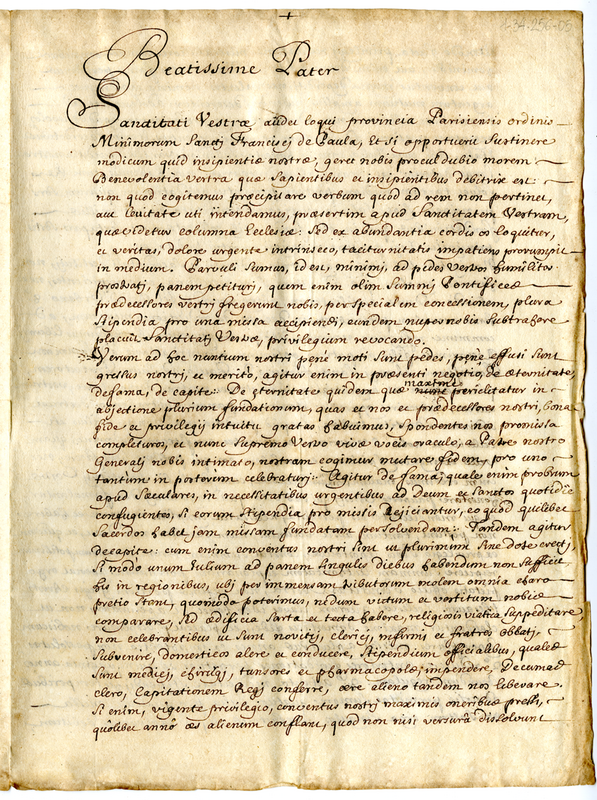 Beatissime Pater
Sanctitati Vestræ audet loqui provincia Parisiensis ordinis
Minimorum Sanctj Franciscj de Paula, Et si opportuerit sustinere
modicum quid insipientiæ nostræ, geret nobis proculdubio morem
Benevolentia vestra quæ sapientibus et insipientibus debitrix est:
non quod cogitemus præcipitare verbum quod ad rem non pertinet,
aut levitate uti intendamus, præsertim apud Sanctitatem Vestram,
quæ videtur columna Ecclesiæ: Sed ex abundantia cordis os loquitur,
et veritas, dolore urgente intrinseco, taciturnitatis impatiens prorumpit
in medium. Parvuli sumus, id est, minimj, ad pedes vestros humiliter
prostratj, panem petiturj, quem enim olim summj Pontifices
prædecessores vestrj fregerunt nobis, per specialem concessionem, plura
stipendia pro una missa accipiendj, eundem nuper nobis subtrahere
placuit Sanctitatj Vestræ, privilegium revocando.
Verum ad hoc nuntium nostri penè moti sunt pedes, penè effusi sunt
gressus nostrj, et meritò, agitur enim in præsenti negotio, de æternitate,
de fama, de capite: De æternitate quidem quæ maxime periclitatur in
abjectione plurium fundationum, quas et nos et prædecessores nostrj, bona
fide et privilegij intuitu gratas habuimus, spondentes nos promissa
completuros, et nunc supremo vestro vivæ vocis oraculo, a Patre nostro
Generalj nobis intimato, nostram cogimur mutare fidem, pro uno
tantum in posterum celebraturj: Agitur de fama; quale enim probrum
apud sæculares, in necessitatibus urgentibus ad Deum et sanctos quotidie
confugientes, si eorum stipendia pro missis rejiciantur, eo quod quilibet
sacerdos habet jam missam fundatam persolvendam: Tandem agitur
de capite: cum enim conventus nostri sint ut plurimum sine dote erectj,
si modo unum Iulium ad panem singulis diebus habendum non sufficit
his in regionibus, ubj per immensam tributorum molem omnia charo
pretio stent, quomodo poterimus, nedum victum et vestitum nobis
comparare, sed ædificia sarta et tecta habere, religiosis viatica suppeditare,
non celebrantibus ut sunt novitij, clericj, infirmi et fratres oblatj,
subvenire, domesticos alere et conducere, stipendium officialibus, quales
sunt medicj, chirurgj, tunsores et pharmacopolæ, impendere, Decumas
clero, Capitationem Regj conferre, ære alieno tandem nos liberare.
Si enim, vigente privilegio, conventus nostrj maximis oneribus pressj,
quolibet annô æs alienum conflant, quod non nisi versurâ dissolvunt